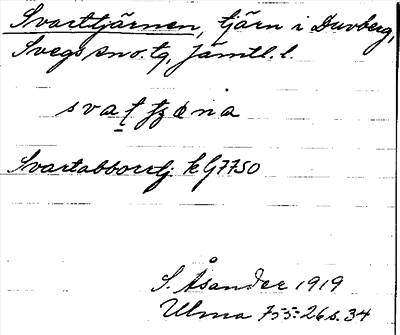 Svarttjärnen, tjärn i Duvberg,
Svegs sn o. tg, Jämtl. l.
Svartabborrtj. k G7750
S. Åsander 1919
Ulma 755:26 s. 34